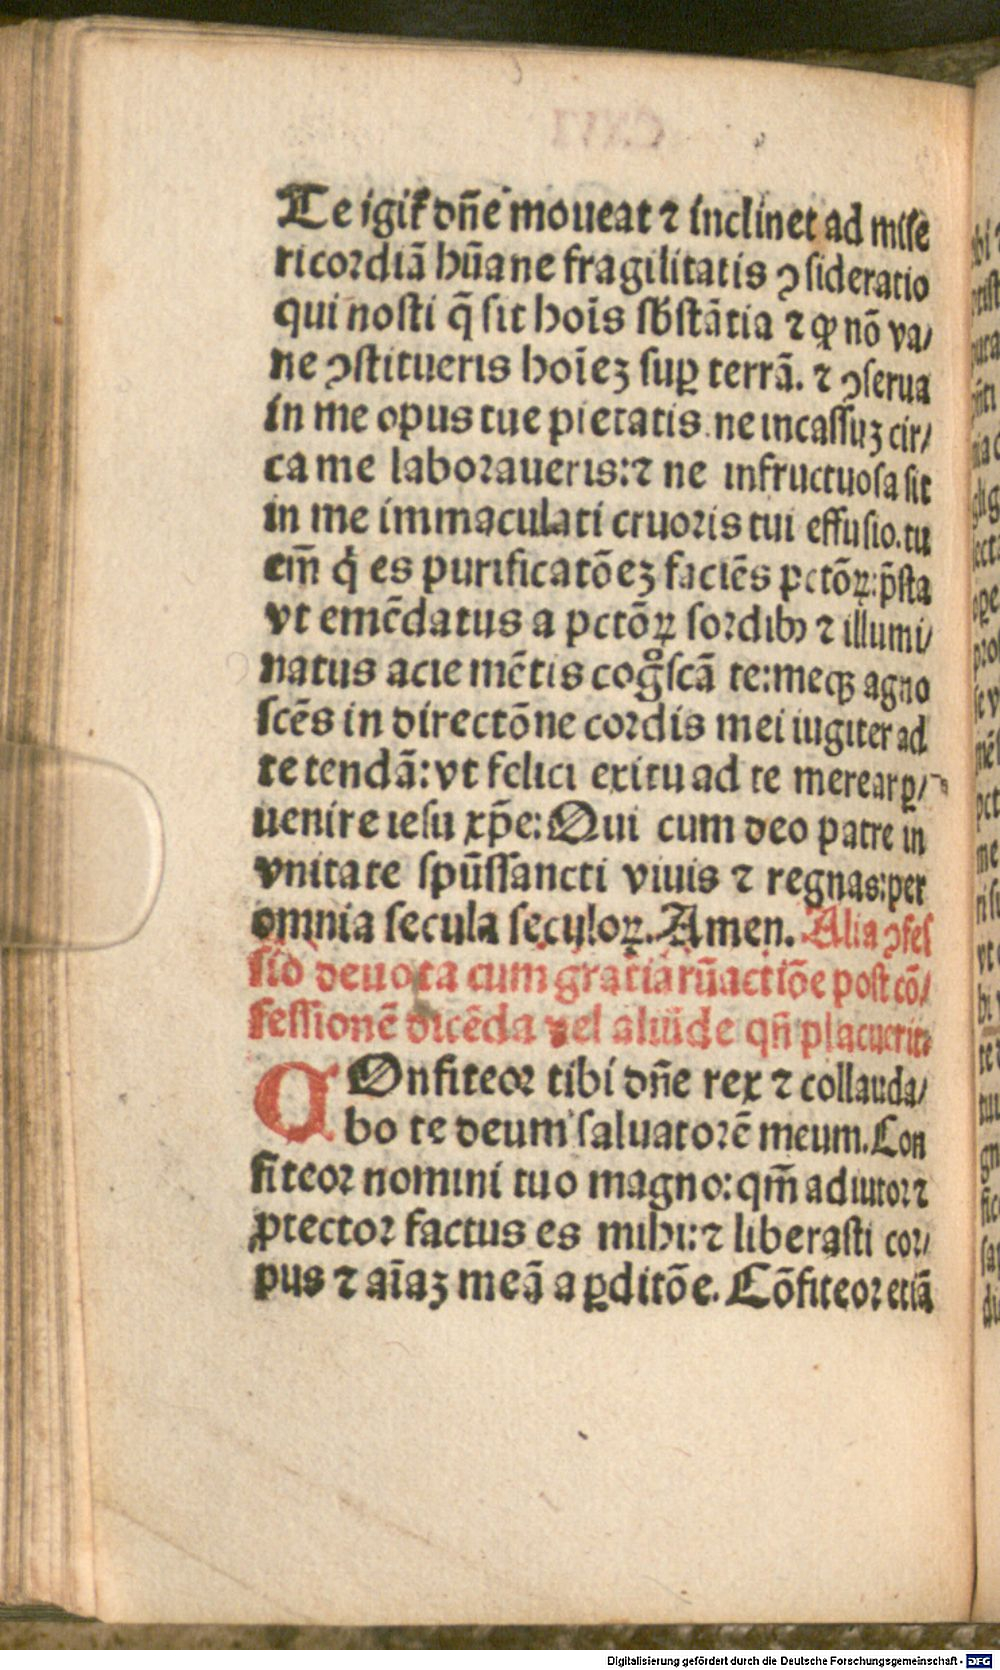 Te igiť dñe moueat ⁊ inclinet ad mise
ricordiã hũane fragilitatis ꝯsideratio
qui nosti q̃ sit hoĩs sb̃stãtia ⁊ ꝙ nõ va/
ne ꝯstitueris hoĩeȝ suꝑ terrã. ⁊ ꝯserua
in me opus tue pietatis ne incassuȝ cir/
ca me laboraueris:⁊ ne infructuosa sit
in me immaculati cruoris tui effusio.tu
em̃ q̇ es purificatõeȝ faciẽs pctõꝝ:p̃sta
vt emẽdatus a pctõꝝ sordibꝰ ⁊ illumi/
natus acie mẽtis cog̊scã te:meqꝫ agno
scẽs in directõne cordis mei iugiter ad
te tendã:vt felici exitu ad te merear ꝑ/
uenire iesu xp̃e:Qui cum deo patre in
vnitate spũssancti viuis ⁊ regnas:per
omnia secula seculoꝝ.Amen. Alia ꝯfes
sio deuota cum gratiarũactiõe post cõ/
fessionẽ dicẽda vel aliũde qñ placuerit.
COnfiteor tibi dñe rex ⁊ collauda/
bo te deum saluatorẽ meum.Con
fiteor nomini tuo magno:qm̃ adiutor ⁊
ꝓtector factus es mihi:⁊ liberasti cor/
pus ⁊ aĩaȝ meã a ꝑditõe. Cõfiteor etiã
Digitalisierung gefördert durch die Deutsche Forschungsgemeinschaft - DFG